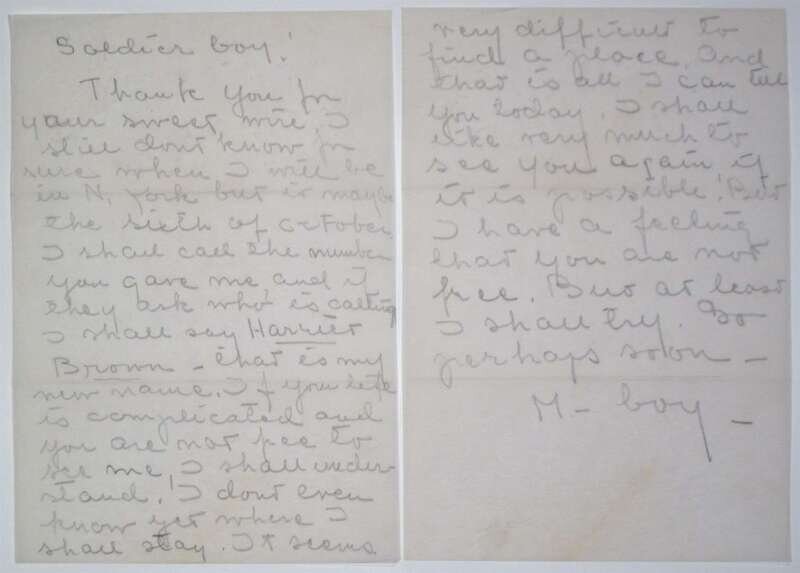 Soldier boy!
Thank you for
your sweet wire. I
still dont know for
sure when I will be
in N. York but it maybe
the sixth of october.
I shall call the number
you gave me and if
they ask who is calling
I shall say Harriet
Brown - that is my
new name. If your life
is complicated and
you are not free to
see me, I shall under-
stand! I dont even
know yet where I
shall stay. It seems
very difficult to
find a place. And
that is all I can tell
you today. I shall
like very much to
see you again if
it is possible! But
I have a feeling
that you are not
free. But at least
I shall try. So
perhaps soon -
M - boy -